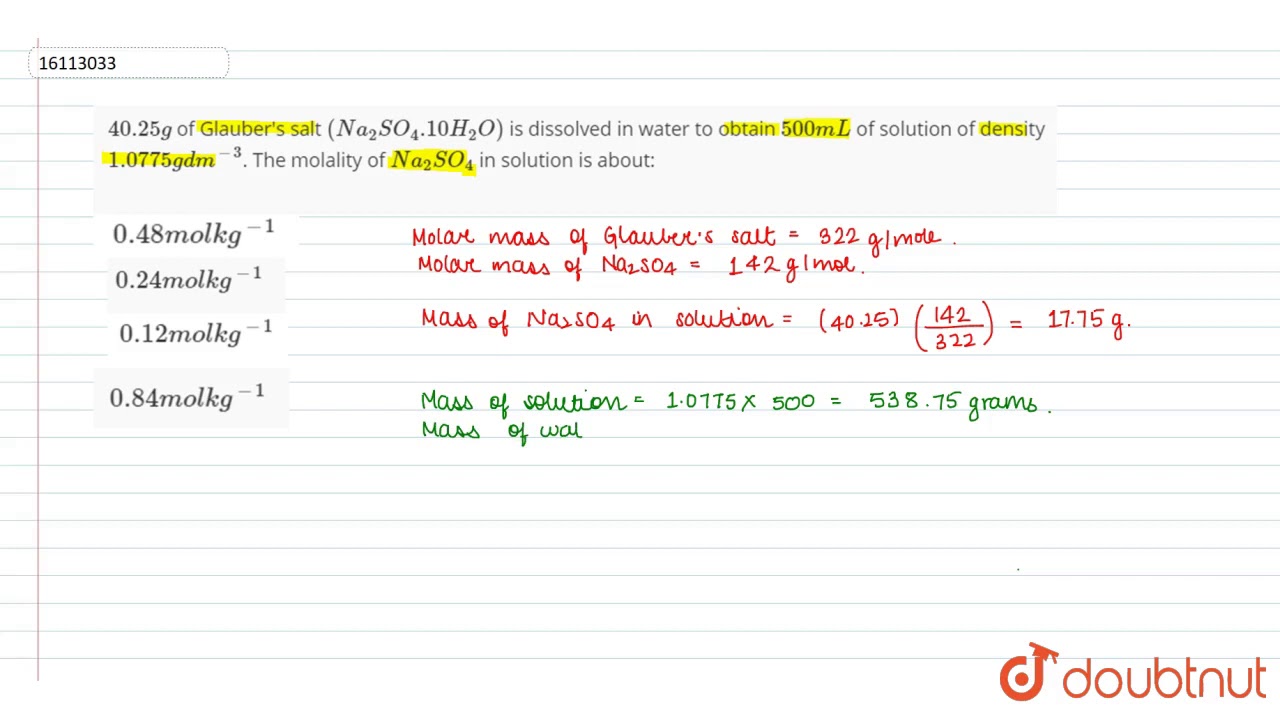 16113033
40.25g of Glauber's salt (Na₂SO₄.10H₂O) is dissolved in water to obtain 500mL of solution of density
1.0775gdm⁻³. The molality of Na₂SO₄ in solution is about:
0.48molkg⁻¹
0.24molkg⁻¹
0.12molkg⁻¹
0.84molkg⁻¹
Molar mass of Glauber's salt = 322 g/mole.
Molar mass of Na₂SO₄ = 142 g/mol.
Mass of Na₂SO₄ in solution = (40.25) (142/322) = 17.75 g.
Mass of solution = 1.0775 × 500 = 538.75 grams.
Mass of wat
doubtnut